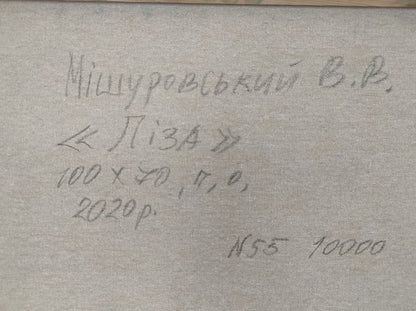 Мішуровський В.В.
« Ліза »
100 х 70, п, о,
2020 р.
N55 10000